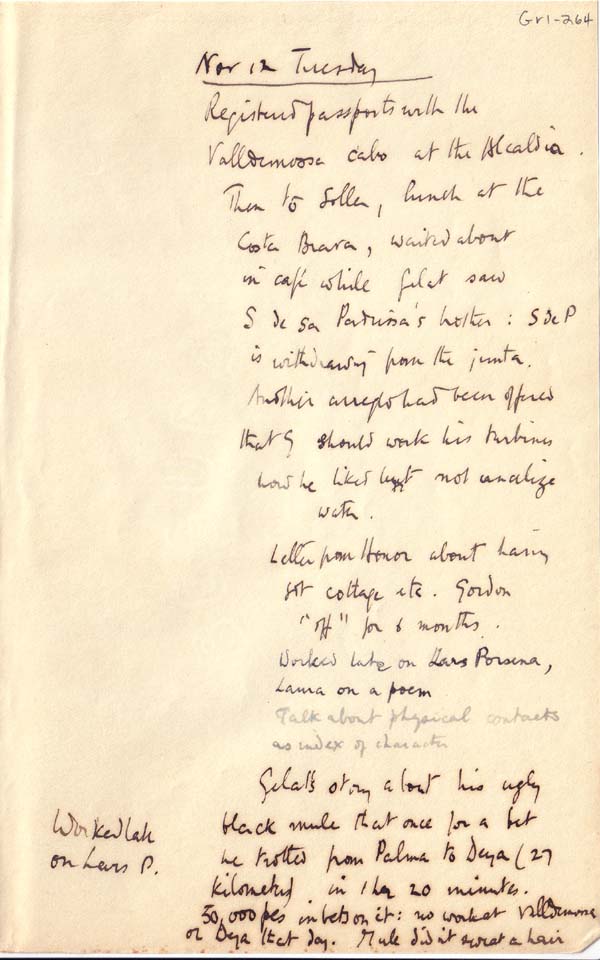 Gr1-264
Nov 12 Tuesday
Registered passports with the
Valldemossa cabo at the Alcaldia.
Then to Soller, lunch at the
Costa Brava, waited about
in café while Gelat saw
S de sa Padrissa's brother: S de P
is withdrawing from the junta.
Another arreglo had been offered
that G should work his turbines
how he liked but not canalize
water.
Letter from Honor about having
got cottage etc. Gordon
"off" for 6 months.
Worked late on Lars Porsena,
Laura on a poem
Talk about physical contacts
as index of character
Gelat's story about his ugly
black mule that once for a bet
he trotted from Palma to Deya (27
kilometres) in 1 hr 20 minutes.
30,000 pes in bets on it: no work at Valldemossa
or Deya that day. Mule didn't sweat a hair
Worked late
on Lars P.